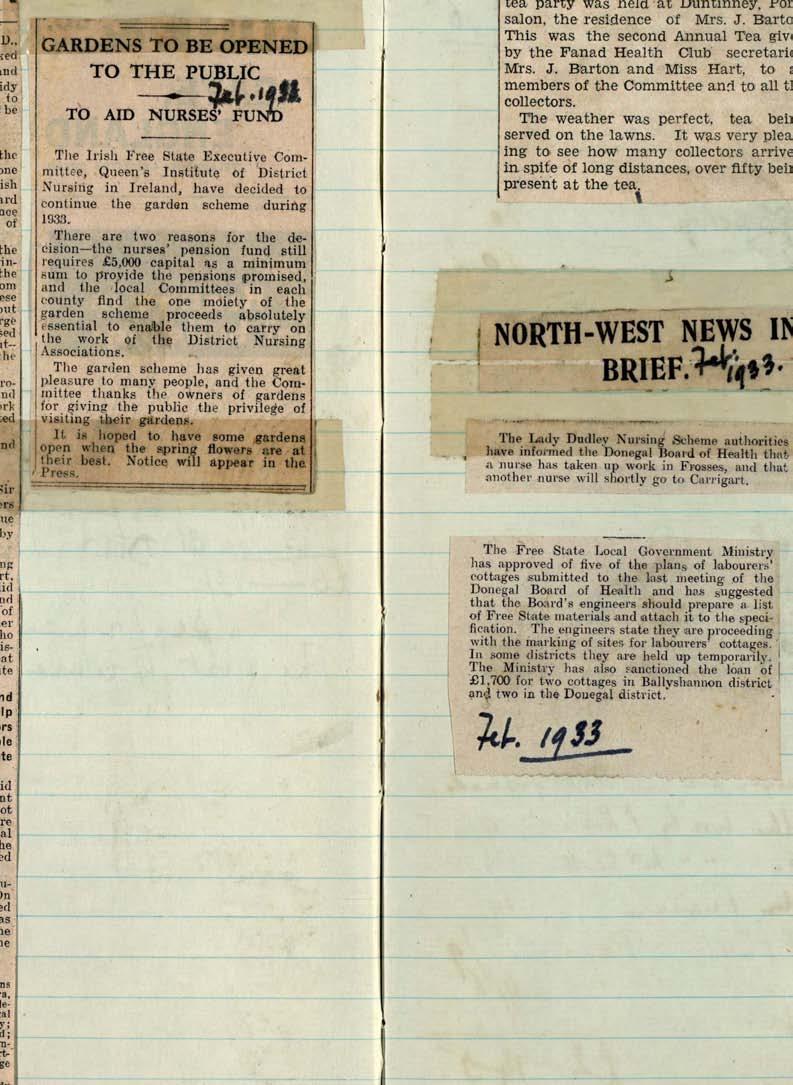 GARDENS TO BE OPENED
TO THE PUBLIC
Feb. 1933
TO AID NURSES' FUND
The Irish Free State Executive Com-
mittee, Queen's Institute of District
Nursing in Ireland, have decided to
continue the garden scheme during
1933.
There are two reasons for the de-
cision—the nurses' pension fund still
requires £5,000 capital as a minimum
sum to provide the pensions promised,
and the local Committees in each
county find the one moiety of the
garden scheme proceeds absolutely
essential to enable them to carry on
the work of the District Nursing
Associations.
The garden scheme has given great
pleasure to many people, and the Com-
mittee thanks the owners of gardens
for giving the public the privilege of
visiting their gardens.
It is hoped to have some gardens
open when the spring flowers are at
their best. Notice will appear in the
Press.
tea party was held at Duntinney, Por
salon, the residence of Mrs. J. Barto
This was the second Annual Tea give
by the Fanad Health Club secretarie
Mrs. J. Barton and Miss Hart, to a
members of the Committee and to all th
collectors.
The weather was perfect, tea bein
served on the lawns. It was very plea
ing to see how many collectors arrive
in spite of long distances, over fifty bein
present at the tea.
NORTH-WEST NEWS IN
BRIEF. Feb. 1933.
The Lady Dudley Nursing Scheme authorities
have informed the Donegal Board of Health that
a nurse has taken up work in Frosses, and that
another nurse will shortly go to Carrigart.
The Free State Local Government Ministry
has approved of five of the plans of labourers'
cottages submitted to the last meeting of the
Donegal Board of Health and has suggested
that the Board's engineers should prepare a list
of Free State materials and attach it to the speci-
fication. The engineers state they are proceeding
with the marking of sites for labourers' cottages.
In some districts they are held up temporarily.
The Ministry has also sanctioned the loan of
£1,700 for two cottages in Ballyshannon district
and two in the Donegal district.
Feb. 1933